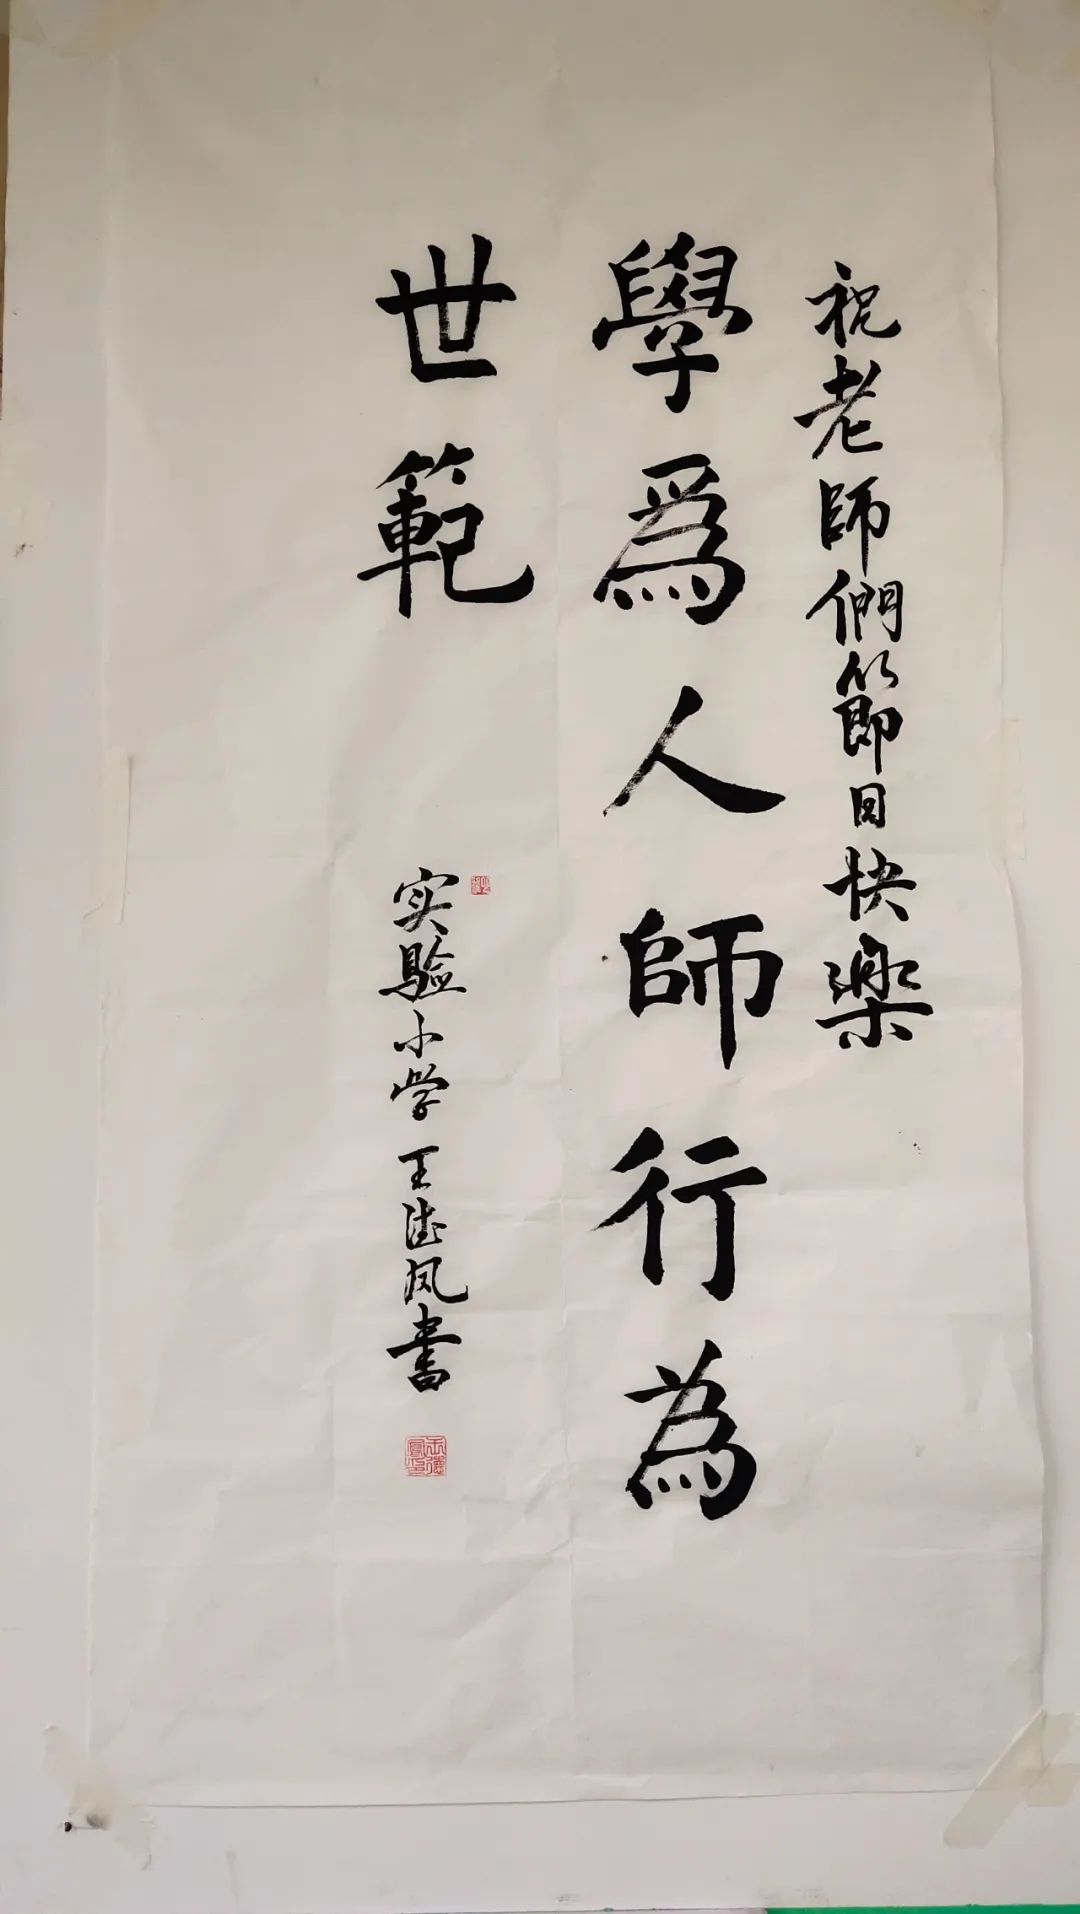 祝老師們節日快樂
學爲人師行為
世範
实驗小学王德凤書